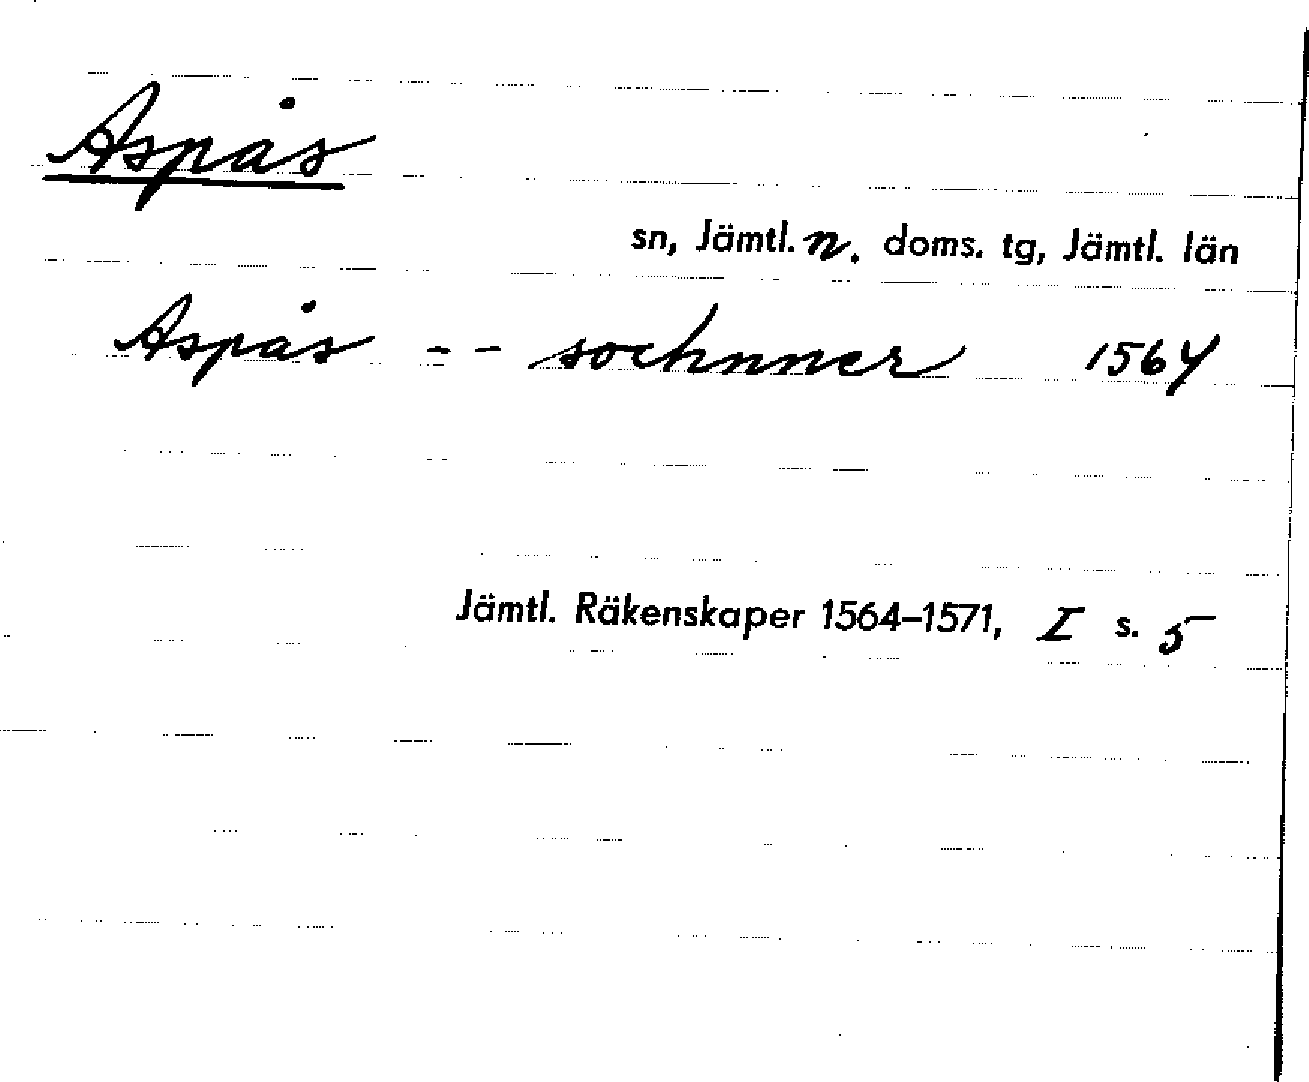 Aspås
sn, Jämtl. n. doms. tg, Jämtl. län
Aspås - - sochnner 1564
Jämtl. Räkenskaper 1564–1571, I s. 5